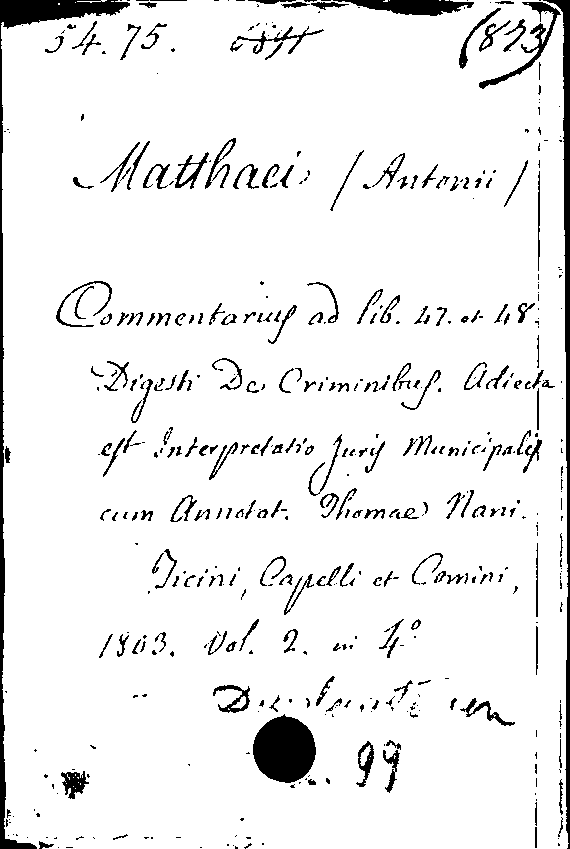 54.75. (873)
Matthaei (Antonii)
Commentarius ad lib. 47. et 48.
Digesti De Criminibus. Adiecta
est Interpretatio Juris Municipalis
cum Annotat. Thomae Nani.
Ticini, Capelli et Comini,
1803. Vol. 2. in 4º
99